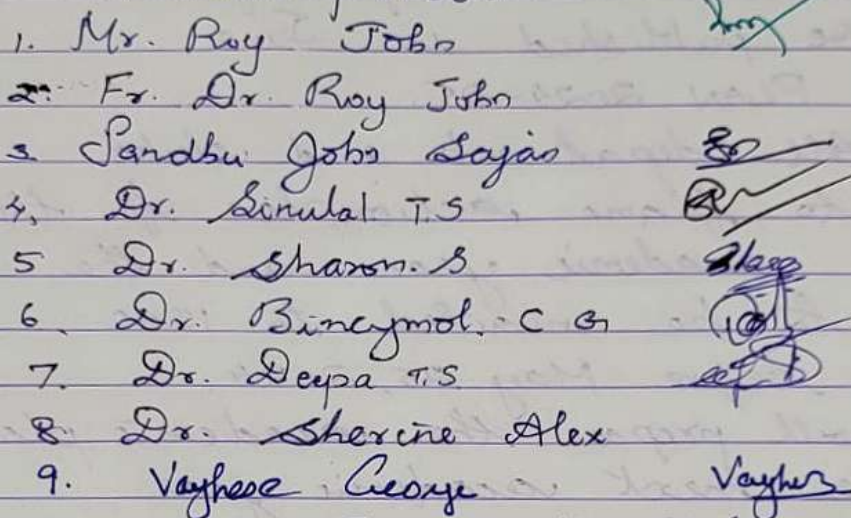 1. Mr. Roy John
2. Fr. Dr. Roy John
3. Sandhu John Sajan
4. Dr. Sinulal T.S
5 Dr. Sharon. S
6. Dr. Bincymol. C G
7. Dr. Deepa T.S
8. Dr. Sherine Alex
9. Vayhese George